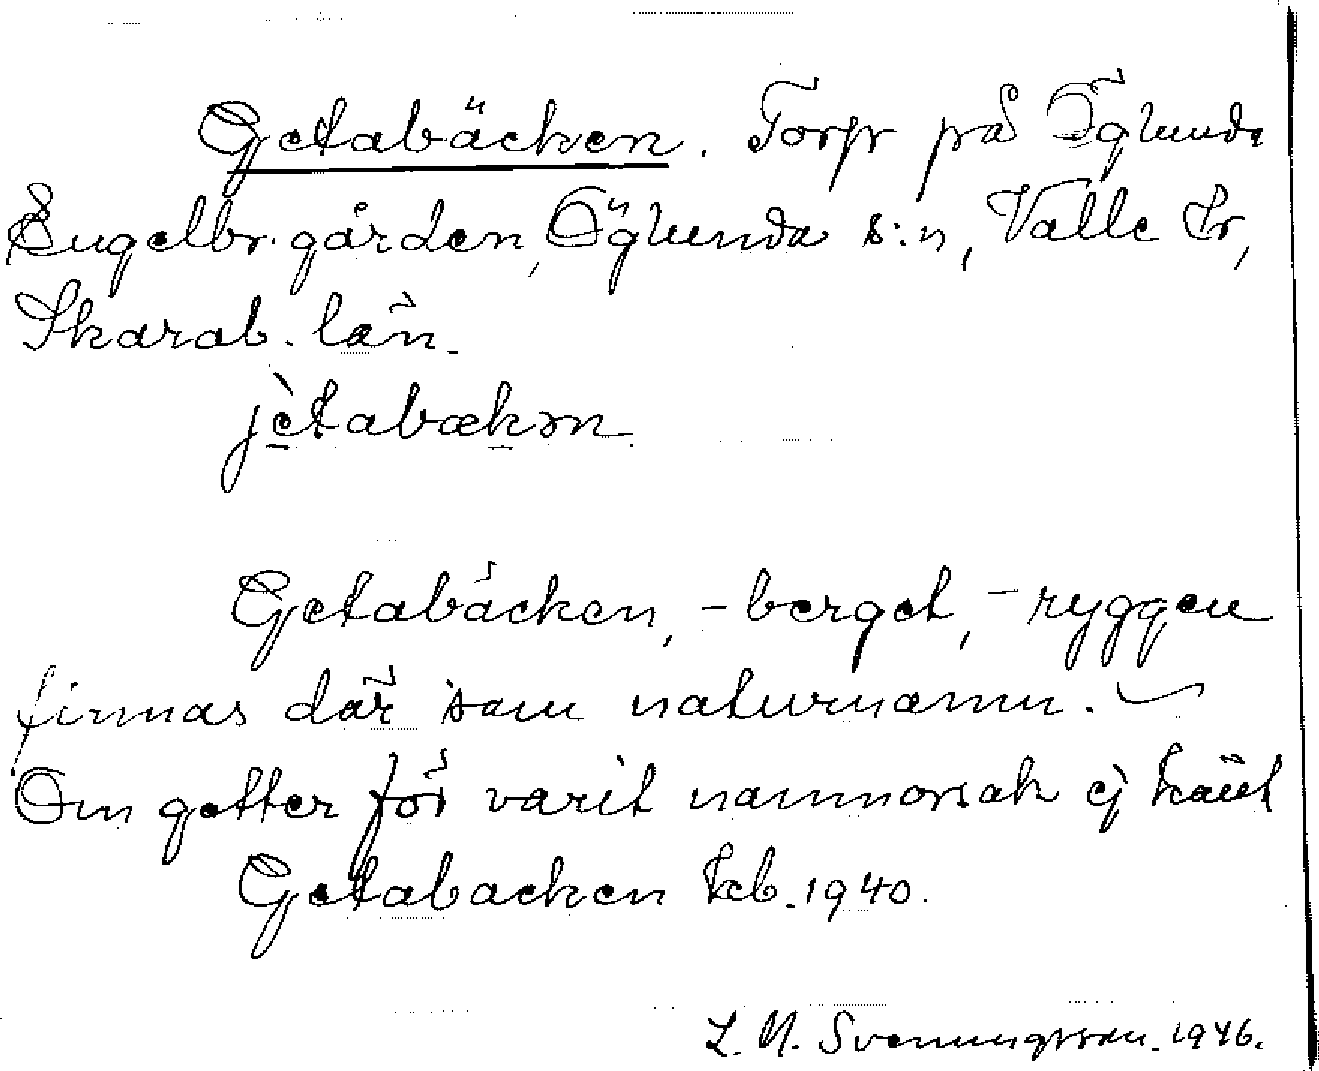 Getabäcken. Torp på Öglunda
Engelbr.gården, Öglunda s:n, Valle hr,
Skarab. län.
jètabækən
Getabäcken, -berget, -ryggen
finnas där som naturnamn.
Om getter för varit namnorsak ej känt
Getabacken kb. 1940.
L. N. Svenungsson. 1946.